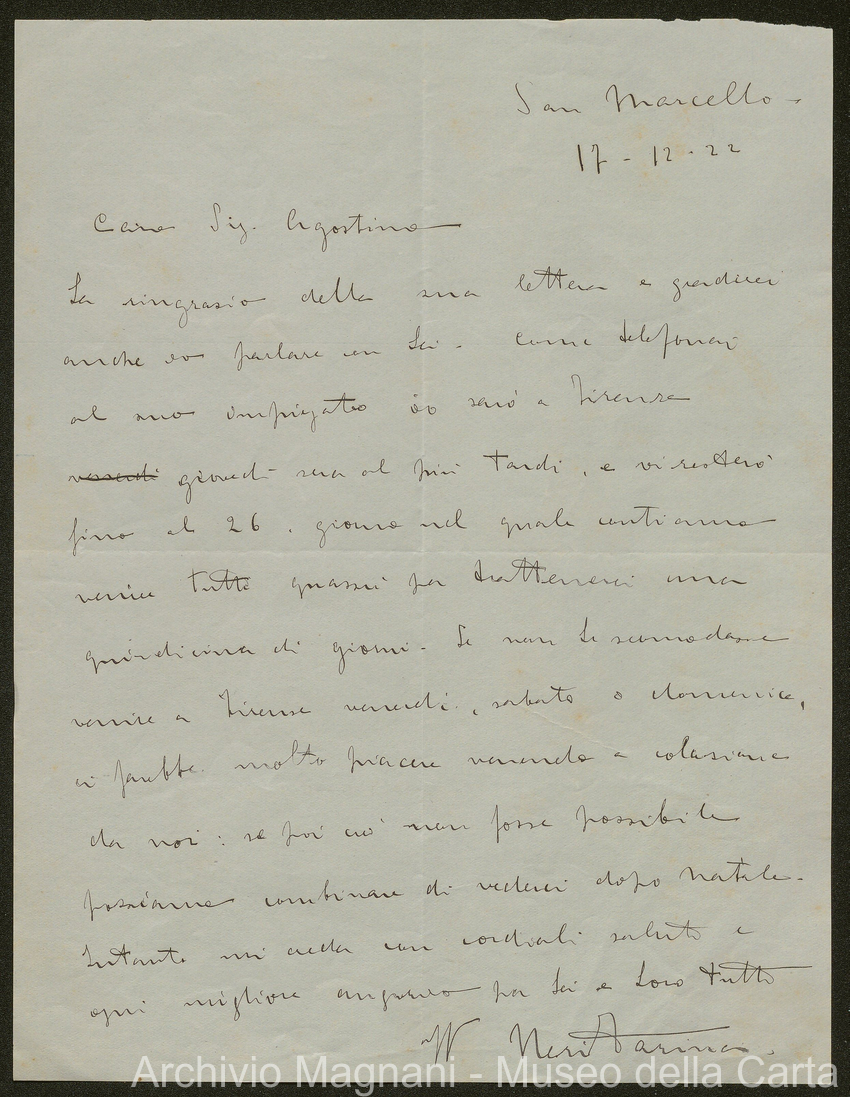 San Marcello -
17 - 12 - 22
Caro Sig. Agostino
La ringrazio della sua lettera e gradirei
anche io parlare con Lei. Come telefonai
al suo impiegato io sarò a Firenze
venerdì giovedì sera al più tardi, e vi resterò
fino al 26, giorno nel quale contiamo
venire tutti quassù per trattenerci una
quindicina di giorni. Se non Le scomodasse
venire a Firenze venerdì, sabato o domenica,
ci farebbe molto piacere venendo a colazione
da noi: se poi ciò non fosse possibile
possiamo combinare di vederci dopo Natale.
Intanto mi creda con cordiali saluti e
ogni migliore augurio per Lei e Loro tutti
Neri Farina
Archivio Magnani - Museo della Carta